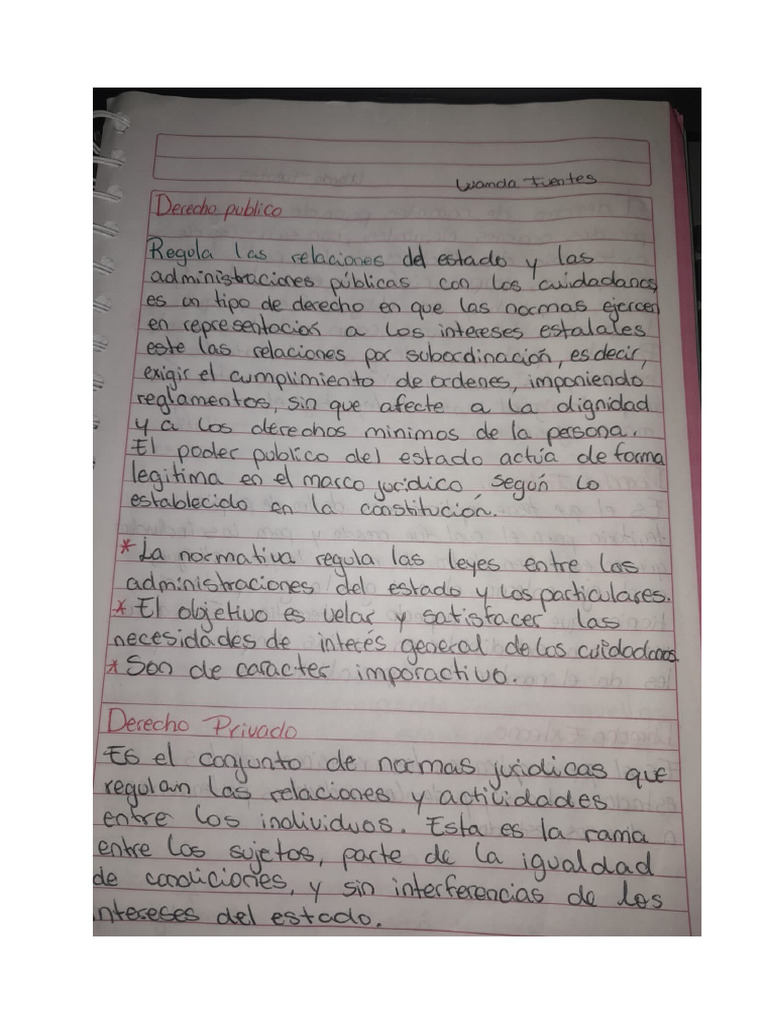 Wanda Fuentes
Derecho publico
Regola las relaciones del estado y las
administraciones públicas con los cuidadanos,
es un tipo de derecho en que las normas ejercen
en representacion a los intereses estatales
este las relaciones por subordinación, es decir,
exigir el cumplimiento de ordenes, imponiendo
reglamentos, sin que afecte a la dignidad
y a los derechos minimos de la persona.
El poder publico del estado actúa de forma
legitima en el marco juridico, según lo
establecido en la constitución.
* La normativa regula las leyes entre las
administraciones del estado y los particulares.
* El objetivo es velar y satisfacer las
necesidades de interés general de los cuidadanos
* Son de caracter imporactivo.
Derecho Privado
Es el conjunto de normas juridicas que
regulan las relaciones y actividades
entre los individuos. Esta es la rama
entre los sujetos, parte de la igualdad
de condiciones, y sin interferencias de los
intereses del estado.